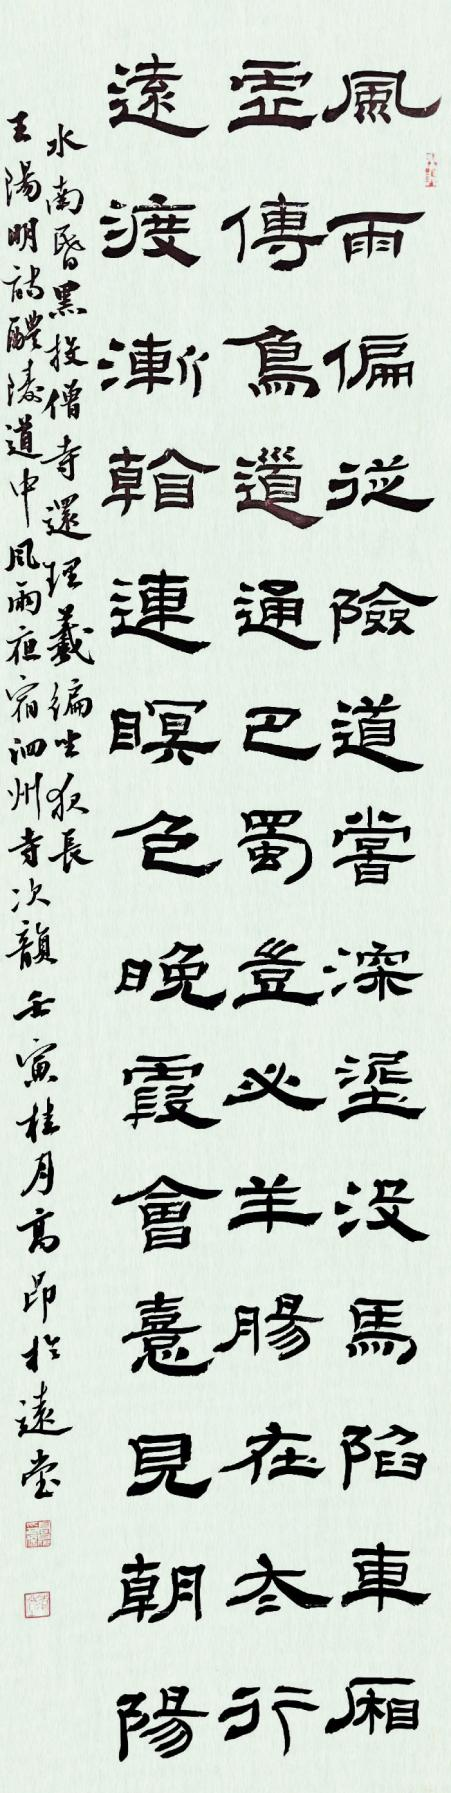 風雨偏從險道嘗深埿没馬陷車厢
虛傳鳥道通巴蜀豈必羊腸在夳行
遠渡漸看連瞑色晚霞會憙見朝陽
水南昏黑投僧寺還理羲編坐夜長
王陽明詩醴陵道中風雨夜宿泗州寺次韻壬寅桂月高昂於遠堂